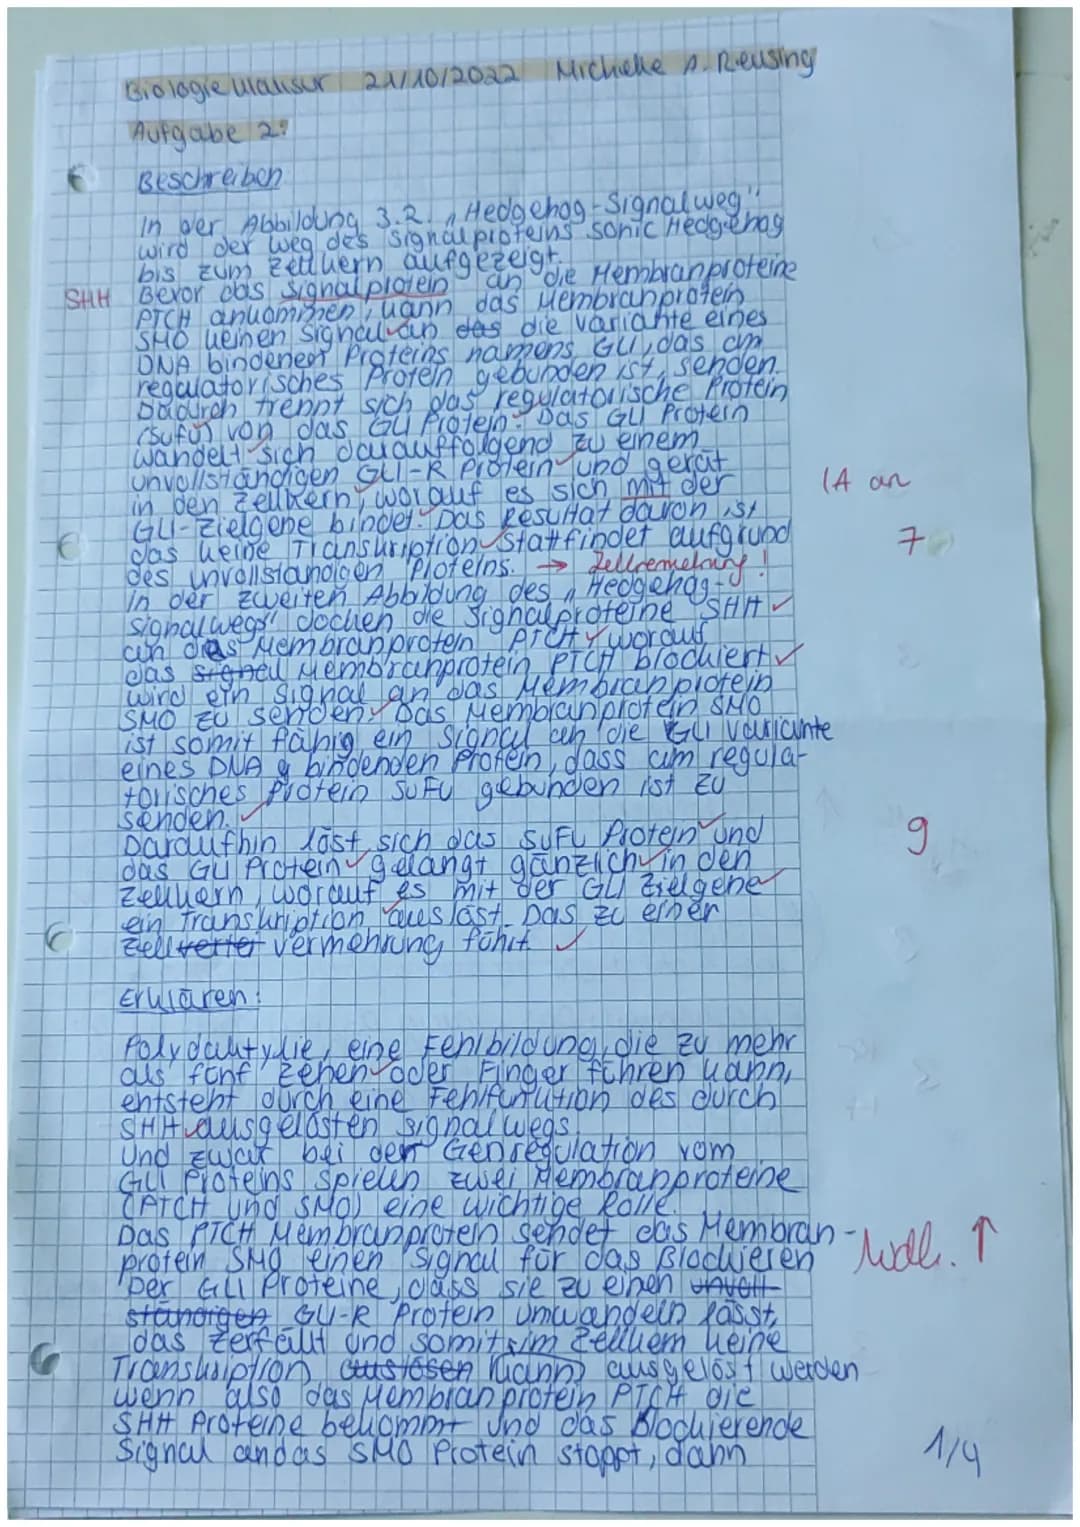 Biologie Klausur 21/10/2022 Michelle A. Reusing
Aufgabe 2:
Beschreiben
In der Abbildung 3.2. „Hedgehog-Signalweg"
wird der Weg des Signalproteins sonic Hedgehog
bis zum Zellkern aufgezeigt.
SHH Bevor das Signalprotein an die Membranproteine
PTCH ankommen, kann das Membranprotein
SMO keinen Signal an das die Variante eines
DNA bindenen Proteins namens GLI, das am
regulatorisches Protein gebunden ist, senden.
Dadurch trennt sich das regulatorische Protein
(SUFU) von das GLI Protein. Das GLI Protein
wandelt sich darauffolgend zu einem
unvollständigen GLI-R Protein und gerät
in den Zellkern, worauf es sich mit der (A an
GLI-Zielgene bindet. Das Resultat davon ist
das keine Transkription stattfindet aufgrund 7
des unvollständigen Proteins. → Zellvermehrung!
In der zweiten Abbildung des „Hedgehog-
signalwegs" docken die Signalproteine SHH
an das Membranprotein PTCH, worauf
das Signal Membranprotein PTCH blockiert
wird ein Signal an das Membranprotein
SMO zu senden. Das Membranprotein SMO
ist somit fähig ein Signal an die GLI variante
eines DNA bindenden Protein, dass am regula-
torisches Protein SUFU gebunden ist zu
senden.
Daraufhin löst sich das SUFU Protein und 9
das GLI Protein gelangt gänzlich in den
Zellkern, worauf es mit der GLI Zielgene
ein Transkription auslöst. Das zu einer
Zell vermehrung führt
Erklären:
Polydaktylie, eine Fehlbildung, die zu mehr
als fünf Zehen oder Finger führen kann,
entsteht durch eine Fehlfunktion des durch
SHH ausgelösten Signalwegs.
Und zwar bei der Genregulation vom
GLI Proteins spielen zwei Membranproteine
(PTCH und SMO) eine wichtige Rolle.
Das PTCH Membranprotein sendet das Membran-
protein SMO einen Signal für das Blockieren
Der GLI Proteine, dass sie zu einen unvoll-
ständigen GLI-R Protein umwandeln lässt,
das zerfällt und somit im Zellkern keine
Transkription auslösen kann) ausgelöst werden
wenn also das Membranprotein PTCH die
SHH Proteine bekommt und das Blockierende
Signal an das SMO Protein stoppt, dann
1/4